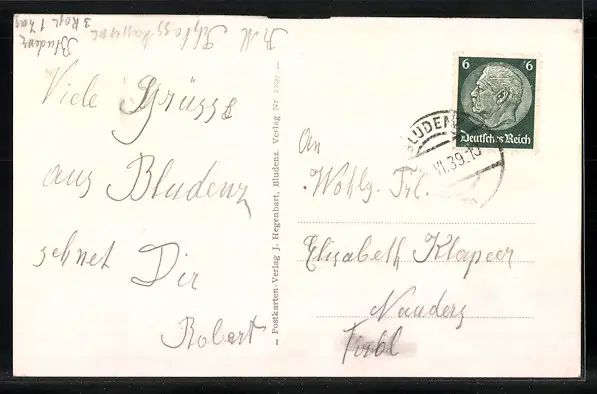 Bludenz
Viele Grüsse
aus Bludenz
sehnet Dir
Robert
– Postkarten-Verlag J. Hegenbart, Bludenz. Verlag Nr.
6 6
Deutsches Reich
BLUDEN
VI.39.10
An
Wohlg. Frl.
Elisabeth Klapeer
Nauders
Tirol